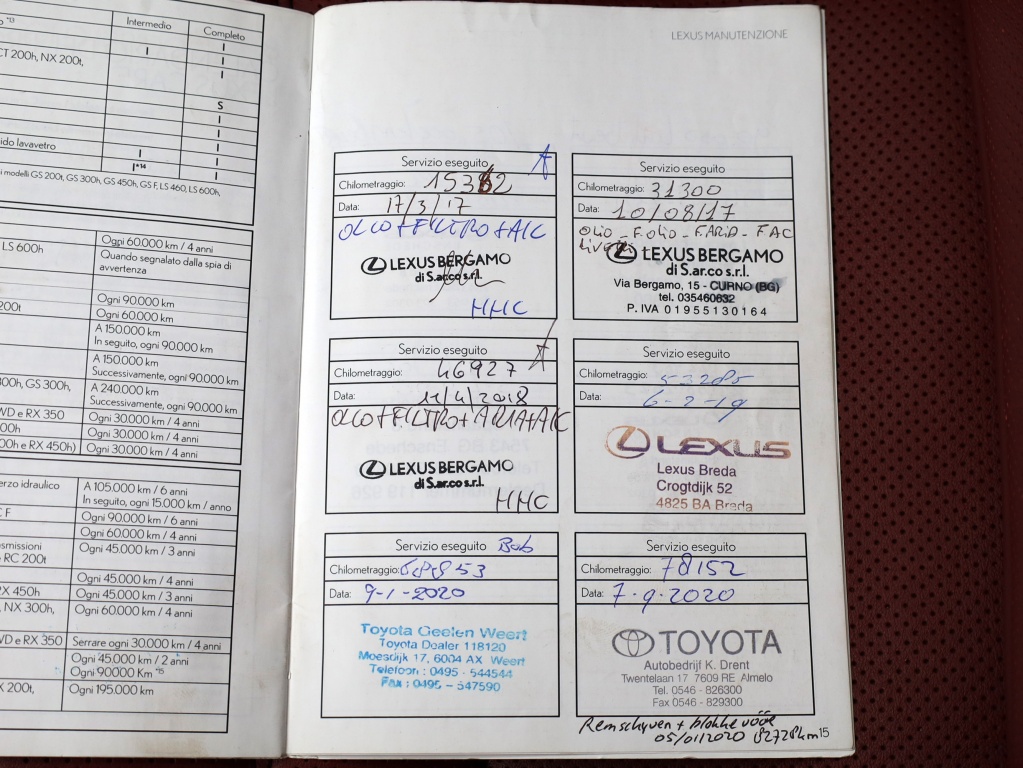 Intermedio
Completo
o *13
I
I
CT 200h, NX 200t,
I
I
S
I
I
ido lavavetro
I
I
I*14
I
i modelli GS 200t, GS 300h, GS 450h, GS F, LS 460, LS 600h,
LS 600h
Ogni 60.000 km / 4 anni
Quando segnalato dalla spia di
avvertenza
Ogni 90.000 km
200t
Ogni 60.000 km
A 150.000 km
In seguito, ogni 90.000 km
A 150.000 km
Successivamente, ogni 90.000 km
300h, GS 300h,
A 240.000 km
Successivamente, ogni 90.000 km
WD e RX 350
Ogni 30.000 km / 4 anni
00h
Ogni 30.000 km / 4 anni
00h e RX 450h)
Ogni 30.000 km / 4 anni
erzo idraulico
A 105.000 km / 6 anni
In seguito, ogni 15.000 km / anno
C F
Ogni 90.000 km / 6 anni
Ogni 60.000 km / 4 anni
smissioni
RC 200t
Ogni 45.000 km / 3 anni
Ogni 45.000 km / 4 anni
RX 450h
Ogni 45.000 km / 3 anni
, NX 300h,
Ogni 60.000 km / 4 anni
WD e RX 350
Serrare ogni 30.000 km / 4 anni
Ogni 45.000 km / 2 anni
Ogni 90000 Km *15
X 200t,
Ogni 195.000 km
LEXUS MANUTENZIONE
Servizio eseguito
Chilometraggio:
Data: 17/3/17
OLIO+FILTRO+A/C
LEXUS BERGAMO
di S.ar.co s.r.l.
HHC
Servizio eseguito
Chilometraggio: 31300
Data: 10/08/17
OLIO - F.OLIO - F.ARIA - F.AC
LEXUS BERGAMO
di S.ar.co s.r.l.
Via Bergamo, 15 - CURNO (BG)
tel. 035460632
P. IVA 01955130164
Servizio eseguito
Chilometraggio: 46927
Data: 11/4/2018
OLIO+FILTRO+ARIA+A/C
LEXUS BERGAMO
di S.ar.co s.r.l.
HHC
Servizio eseguito
Chilometraggio: 53285
Data: 6-2-19
LEXUS
Lexus Breda
Crogtdijk 52
4825 BA Breda
Servizio eseguito Bob
Chilometraggio: 68853
Data: 9-1-2020
Toyota Geelen Weert
Toyota Dealer 118120
Moesdijk 17, 6004 AX Weert
Telefoon : 0495 - 544544
Fax : 0495 - 547590
Servizio eseguito
Chilometraggio: 78152
Data: 7-9-2020
TOYOTA
Autobedrijf K. Drent
Twentelaan 17 7609 RE Almelo
Tel. 0546 - 826300
Fax 0546 - 829300
Remschijven + blokke vóór
05/01/2020 82728km
15